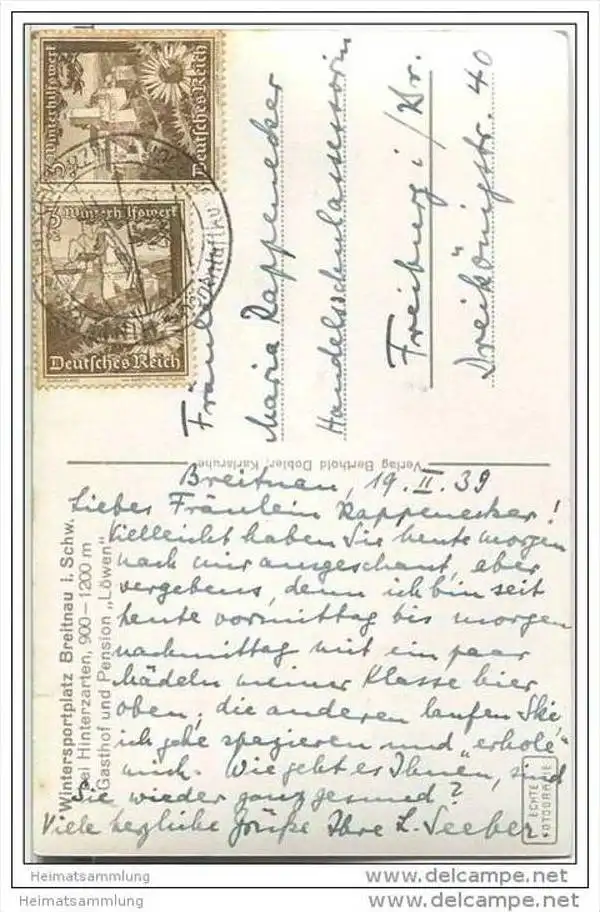 3 Winterhilfswerk
Deutsches Reich
3 Winterhilfswerk
Deutsches Reich
Fräulein
Maria Rappenecker
Handelsschulassessorin
Freiburg i/Br.
Dreikönigstr. 40
Verlag Berthold Dobler, Karlsruhe
Wintersportplatz Breitnau i. Schw.
bei Hinterzarten, 900–1200 m
Gasthof und Pension „Löwen"
Breitnau, 19.II.39
Liebes Fräulein Rappenecker!
Vielleicht haben Sie heute morgen
nach mir ausgeschaut, aber
vergebens, denn ich bin seit
heute vormittag bis morgen
nachmittag mit ein paar
Mädeln meiner Klasse hier
oben, die anderen laufen Ski,
ich gehe spazieren und „erhole"
mich. Wie geht es Ihnen, sind
Sie wieder ganz gesund?
Viele herzliche Grüße Ihre L. Seeber
ECHTE
FOTOGRAFIE
Heimatsammlung
Heimatsammlung
www.delcampe.net
www.delcampe.net